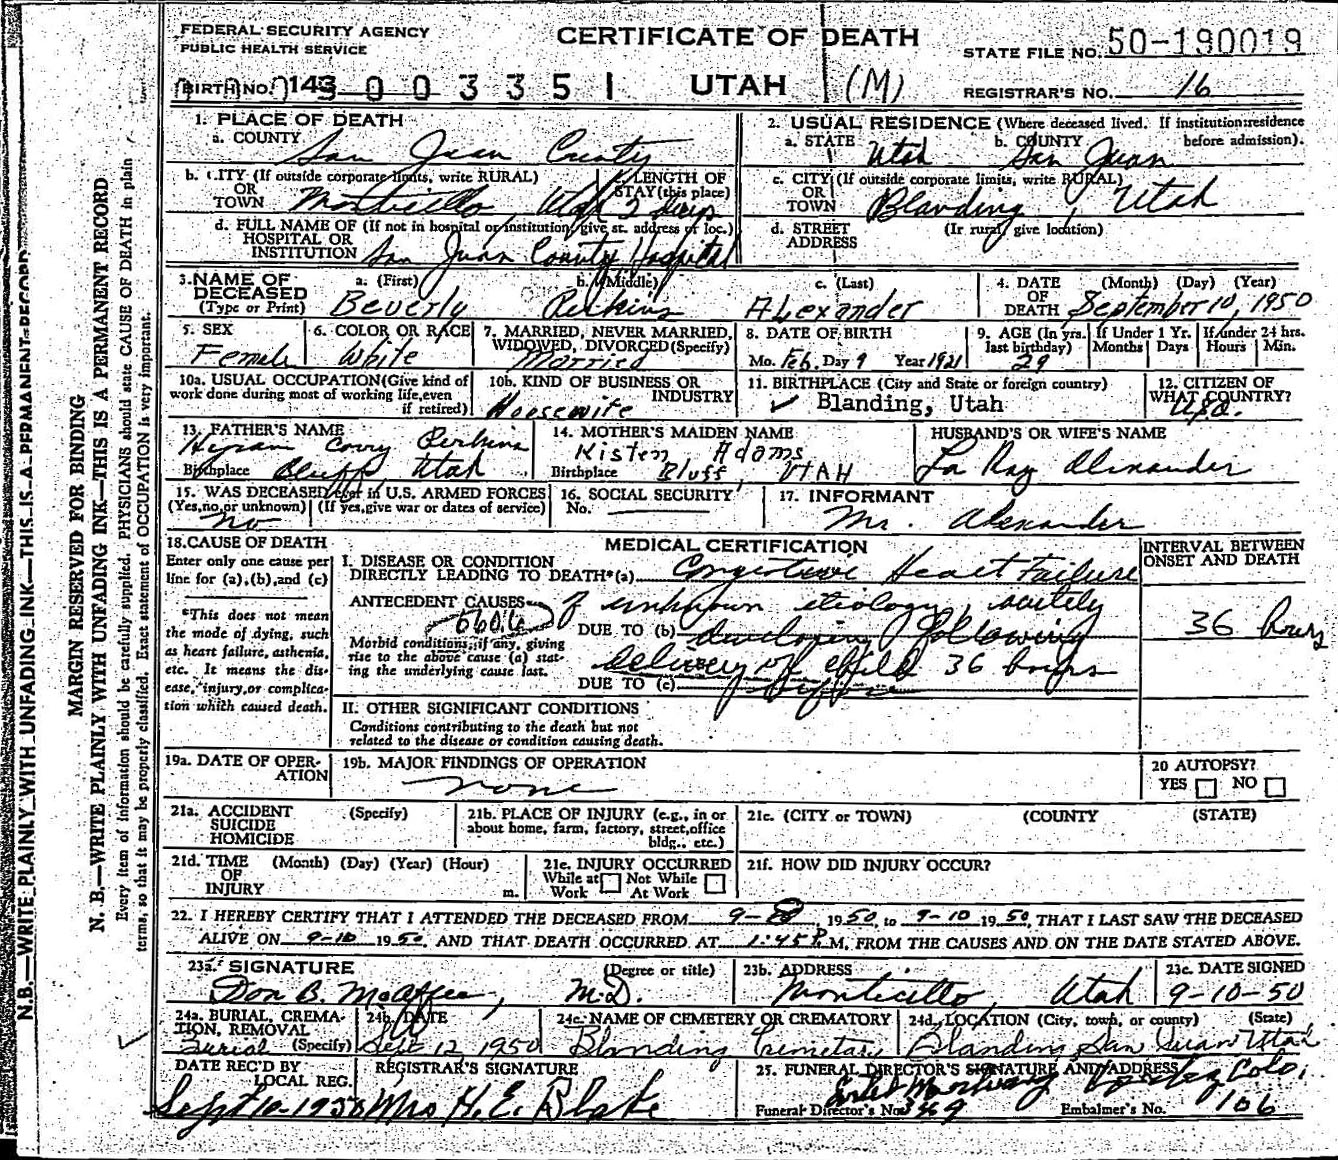 FEDERAL SECURITY AGENCY
PUBLIC HEALTH SERVICE
CERTIFICATE OF DEATH
STATE FILE NO. 50-190019
BIRTH NO. 143 003351 UTAH (M) REGISTRAR'S NO. 16
1. PLACE OF DEATH
a. COUNTY San Juan County
2. USUAL RESIDENCE (Where deceased lived. If institution: residence before admission).
a. STATE Utah b. COUNTY San Juan
b. CITY (If outside corporate limits, write RURAL) OR TOWN Monticello, Utah
c. LENGTH OF STAY (this place) 2 days
c. CITY (If outside corporate limits, write RURAL) OR TOWN Blanding, Utah
d. FULL NAME OF (If not in hospital or institution, give st. address or loc.) HOSPITAL OR INSTITUTION San Juan County Hospital
d. STREET ADDRESS (If rural, give location)
3. NAME OF DECEASED (Type or Print) a. (First) Beverly b. (Middle) Perkins c. (Last) Alexander
4. DATE OF DEATH (Month) (Day) (Year) September 10, 1950
5. SEX Female
6. COLOR OR RACE White
7. MARRIED, NEVER MARRIED, WIDOWED, DIVORCED (Specify) Married
8. DATE OF BIRTH Mo. Feb. Day 9 Year 1921
9. AGE (In yrs. last birthday) 29
If Under 1 Yr. Months Days
If under 24 hrs. Hours Min.
10a. USUAL OCCUPATION (Give kind of work done during most of working life, even if retired)
10b. KIND OF BUSINESS OR INDUSTRY Housewife
11. BIRTHPLACE (City and State or foreign country) ✓ Blanding, Utah
12. CITIZEN OF WHAT COUNTRY? USA.
13. FATHER'S NAME Hyrum Corry Perkins
Birthplace Bluff, Utah
14. MOTHER'S MAIDEN NAME Kisten, Adams
Birthplace Bluff, UTAH
HUSBAND'S OR WIFE'S NAME
La Ray Alexander
15. WAS DECEASED ever in U.S. ARMED FORCES
(Yes, no, or unknown) (If yes, give war or dates of service)
No
16. SOCIAL SECURITY No.
17. INFORMANT
Mr. Alexander
18. CAUSE OF DEATH
Enter only one cause per line for (a), (b), and (c)
*This does not mean the mode of dying, such as heart failure, asthenia, etc. It means the disease, injury, or complication which caused death.
MEDICAL CERTIFICATION
INTERVAL BETWEEN ONSET AND DEATH
I. DISEASE OR CONDITION DIRECTLY LEADING TO DEATH* (a) Congestive Heart Failure
ANTECEDENT CAUSES of unknown etiology, acutely
Morbid conditions, if any, giving rise to the above cause (a) stating the underlying cause last.
DUE TO (b) developing following
delivery of child 36 hours
DUE TO (c) before
36 hours
II. OTHER SIGNIFICANT CONDITIONS
Conditions contributing to the death but not related to the disease or condition causing death.
19a. DATE OF OPERATION
19b. MAJOR FINDINGS OF OPERATION
none
20 AUTOPSY?
YES NO
21a. ACCIDENT SUICIDE HOMICIDE (Specify)
21b. PLACE OF INJURY (e.g., in or about home, farm, factory, street, office bldg., etc.)
21c. (CITY or TOWN) (COUNTY (STATE)
21d. TIME OF INJURY (Month) (Day) (Year) (Hour) m.
21e. INJURY OCCURRED
While at Work Not While At Work
21f. HOW DID INJURY OCCUR?
22. I HEREBY CERTIFY THAT I ATTENDED THE DECEASED FROM 9-8 1950, to 9-10 1950, THAT I LAST SAW THE DECEASED
ALIVE ON 9-10 1950, AND THAT DEATH OCCURRED AT 1:45 P. M. FROM THE CAUSES AND ON THE DATE STATED ABOVE.
23a. SIGNATURE (Degree or title)
Don B. McAffee, M.D.
23b. ADDRESS
Monticello, Utah
23c. DATE SIGNED
9-10-50
24a. BURIAL, CREMATION, REMOVAL (Specify) Burial
24b. DATE
Sept 12 1950
24c. NAME OF CEMETERY OR CREMATORY
Blanding Cemetary
24d. LOCATION (City, town, or county) (State)
Blanding, San Juan Utah
DATE REC'D BY LOCAL REG.
Sept 10-1950
REGISTRAR'S SIGNATURE
Mrs H. E. Blake
25. FUNERAL DIRECTOR'S SIGNATURE AND ADDRESS
Ertel Mortuary Cortez Colo.
Funeral Director's No. 369 Embalmer's No. 106
MARGIN RESERVED FOR BINDING
N. B.—WRITE PLAINLY WITH UNFADING INK—THIS IS A PERMANENT RECORD
Every item of information should be carefully supplied. PHYSICIANS should state CAUSE OF DEATH in plain terms, so that it may be properly classified. Exact statement of OCCUPATION is very important.
N.B.—WRITE PLAINLY WITH UNFADING INK—THIS IS A PERMANENT RECORD